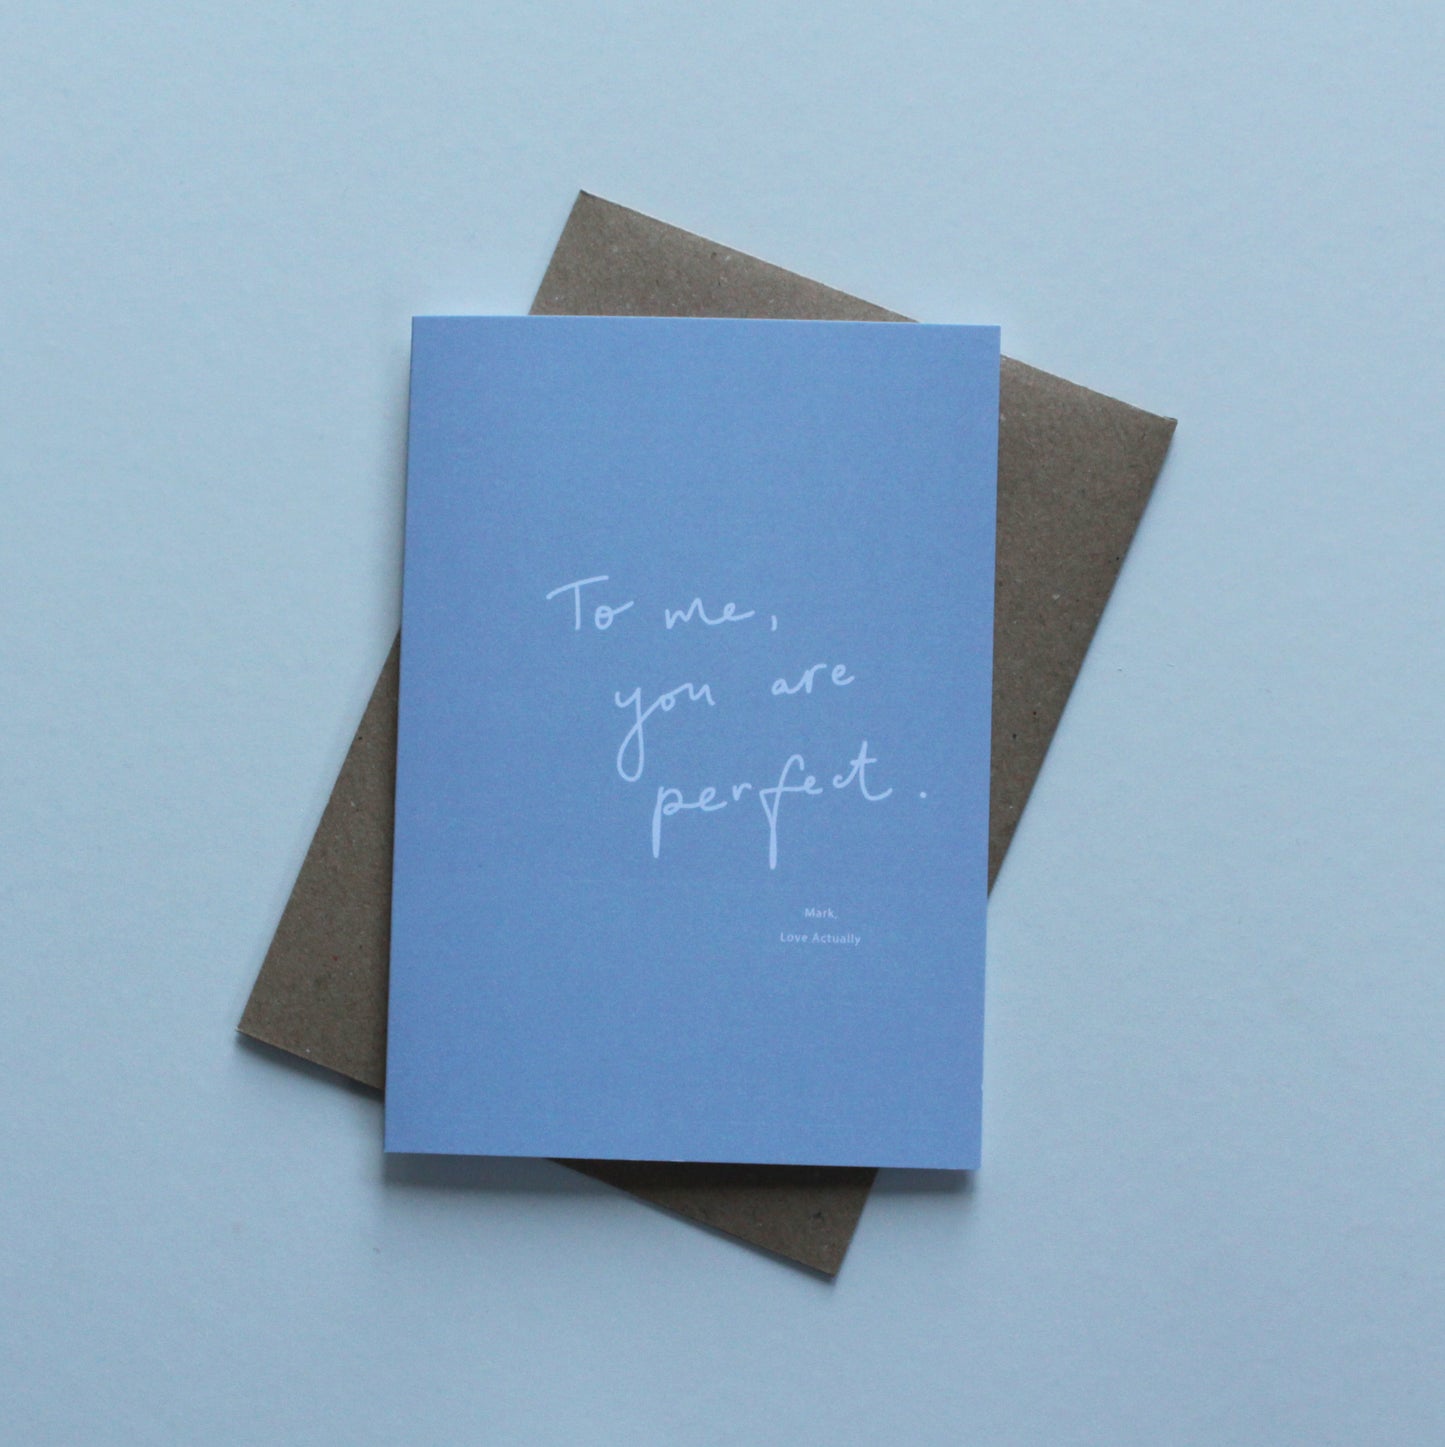 To me,
you are
perfect.
Mark,
Love Actually